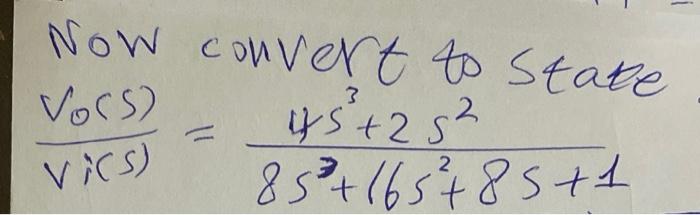 Now convert to state
Vo(s)/Vi(s) = 4s³+2s²/8s³+16s²+8s+1